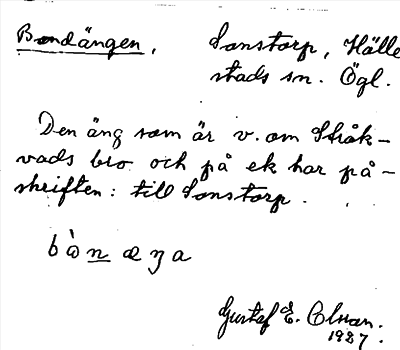 Bondängen, Sonstorp, Hälle
stads sn. Ögl.
Den äng som är v. om Stråk-
vads bro och på ek har på-
skriften: till Sonstorp.
bò̱n æŋa
Gustaf E. Olsson.
1927.